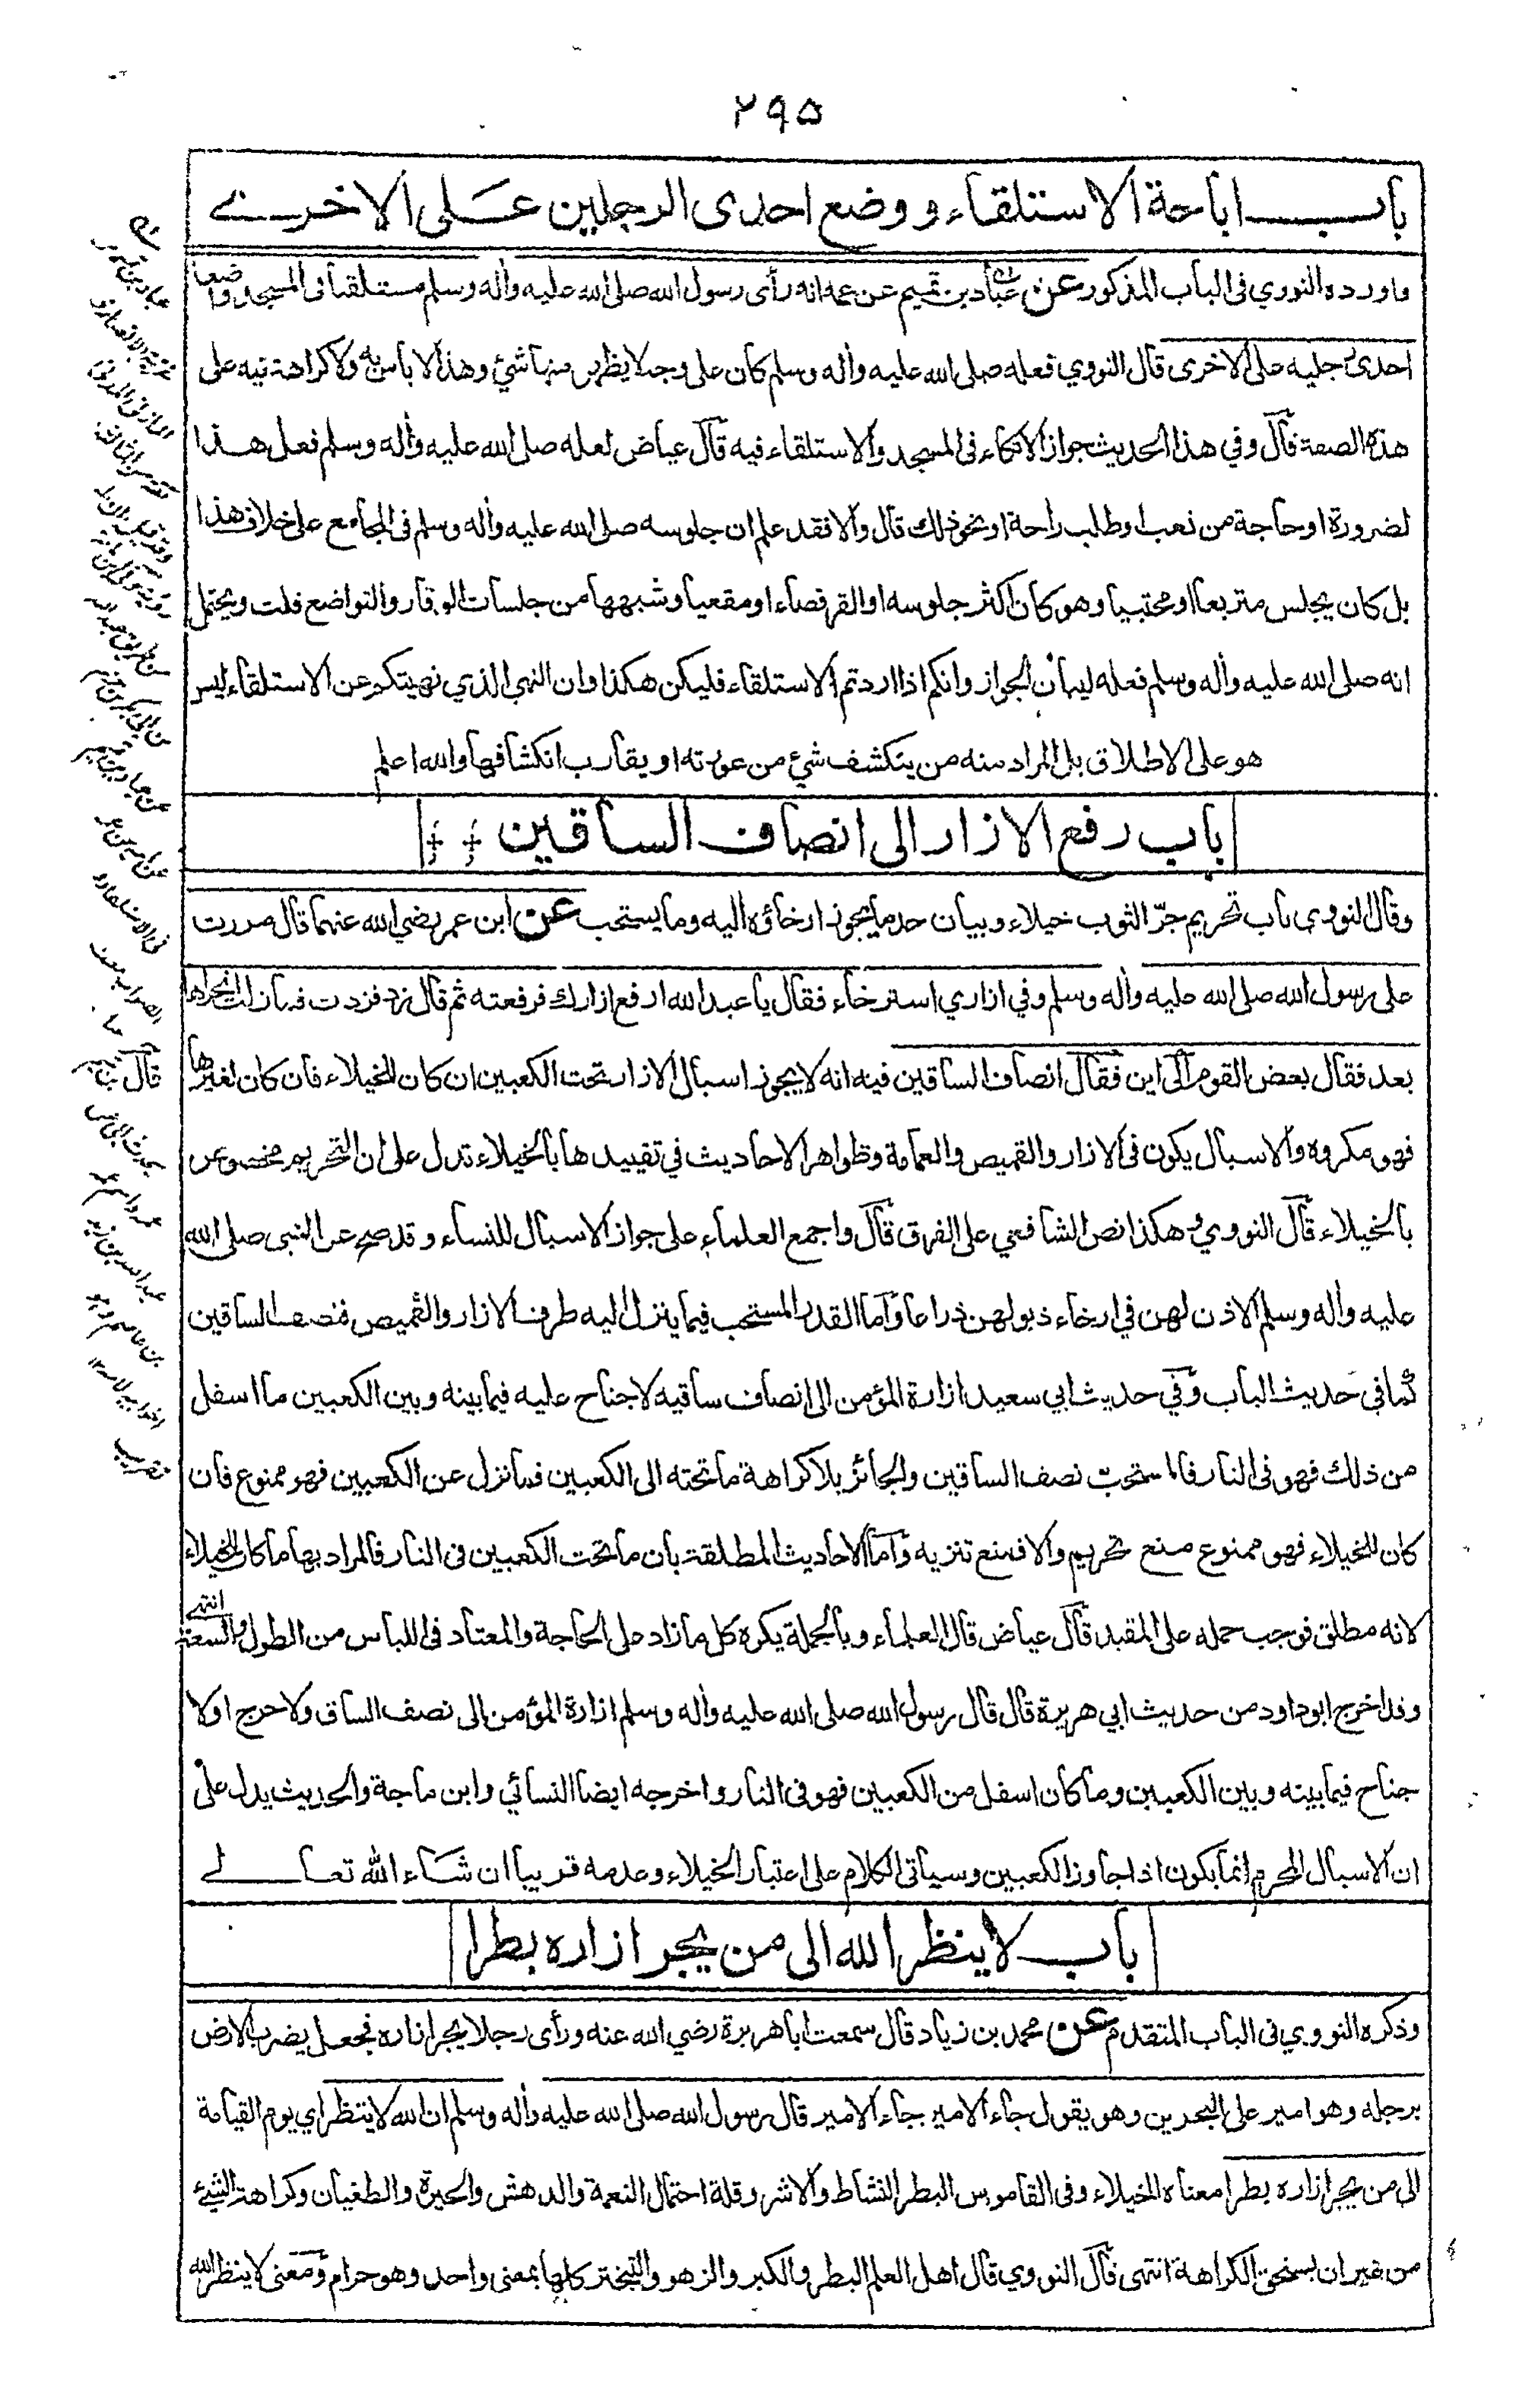 ٢٩٥
باب اباحة الاستلقاء ووضع احدى الرجلين على الاخرى
واورده النووي فى الباب المذكور عن عباد بن تميم عن عمه انه رأى رسول الله صلى الله عليه وأله وسلم مستلقيا فى المسجد واضعا
احدى رجليه على الاخرى قال النووي فعله صلى الله عليه وأله وسلم كان على وجه لا يظهر منها شئ وهذا لا بأس به ولا كراهة فيه على
هذه الصفة قال وفي هذا الحديث جواز الاتكاء فى المسجد والاستلقاء فيه قال عياض لعله صلى الله عليه وأله وسلم فعل هذا
لضرورة او حاجة من تعب او طلب راحة او نحو ذلك قال والا فقد علم ان جلوسه صلى الله عليه وأله وسلم فى المجامع على خلاف هذا
بل كان يجلس متربعا او محتبيا وهو كان اكثر جلوسه او القرفصاء او مقعيا وشبهها من جلسات الوقار والتواضع قلت ويحتمل
انه صلى الله عليه وأله وسلم فعله لبيان الجواز وانكم اذا اردتم الاستلقاء فليكن هكذا وان النهي الذي نهيتكم عن الاستلقاء ليس
هو على الاطلاق بل المراد منه من ينكشف شئ من عورته او يقارب انكشافها والله اعلم
باب رفع الازار الى انصاف الساقين
وقال النووي باب تحريم جرّ الثوب خيلاء وبيان حد ما يجوز ارخاؤه اليه وما يستحب عن ابن عمر رضي الله عنهما قال مررت
على رسول الله صلى الله عليه وأله وسلم وفي ازاري استرخاء فقال يا عبد الله ارفع ازارك فرفعته ثم قال زد فزدت فما زلت اتحراها
بعد فقال بعض القوم الى اين فقال انصاف الساقين فيه انه لا يجوز اسبال الازار تحت الكعبين ان كان للخيلاء فان كان لغيرها
فهو مكروه والاسبال يكون فى الازار والقميص والعمامة وظواهر الاحاديث في تقييدها بالخيلاء تدل على ان التحريم مخصوص
بالخيلاء قال النووي وهكذا نص الشافعي على الفرق قال واجمع العلماء على جواز الاسبال للنساء وقد صح عن النبي صلى الله
عليه وأله وسلم الاذن لهن في ارخاء ذيولهن ذراعا واما القدر المستحب فيما ينزل اليه طرف الازار والقميص فنصف الساقين
كما في حديث الباب وفي حديث ابي سعيد ازارة المؤمن الى انصاف ساقيه لا جناح عليه فيما بينه وبين الكعبين ما اسفل
من ذلك فهو فى النار فالمستحب نصف الساقين والجائز بلا كراهة ما تحته الى الكعبين فما نزل عن الكعبين فهو ممنوع فان
كان للخيلاء فهو ممنوع منع تحريم والا فمنع تنزيه واما الاحاديث المطلقة بان ما تحت الكعبين فى النار فالمراد بها ما كان للخيلاء
لانه مطلق فوجب حمله على المقيد قال عياض قال العلماء وبالجملة يكره كل ما زاد على الحاجة والمعتاد فى اللباس من الطول والسعة انتهى
وقد اخرج ابو داود من حديث ابي هريرة قال قال رسول الله صلى الله عليه وأله وسلم ازارة المؤمن الى نصف الساق ولا حرج اولا
جناح فيما بينه وبين الكعبين وما كان اسفل من الكعبين فهو فى النار واخرجه ايضا النسائي وابن ماجة والحديث يدل على
ان الاسبال المحرم انما يكون اذا جاوز الكعبين وسيأتى الكلام على اعتبار الخيلاء وعدمه قريبا ان شاء الله تعالى
باب لا ينظر الله الى من يجر ازاره بطرا
وذكره النووي فى الباب المتقدم عن محمد بن زياد قال سمعت ابا هريرة رضي الله عنه ورأى رجلا يجر ازاره فجعل يضرب الارض
برجله وهو امير على البحرين وهو يقول جاء الامير جاء الامير قال رسول الله صلى الله عليه وأله وسلم ان الله لا ينظر اي يوم القيامة
الى من يجر ازاره بطرا معناه للخيلاء وفى القاموس البطر النشاط والاشر وقلة احتمال النعمة والدهش والحيرة والطغيان وكراهة الشئ
من غير ان يستحق الكراهة انتهى قال النووي قال اهل العلم البطر والكبر والزهو والتبختر كلها بمعنى واحد وهو حرام ومعنى لا ينظر الله